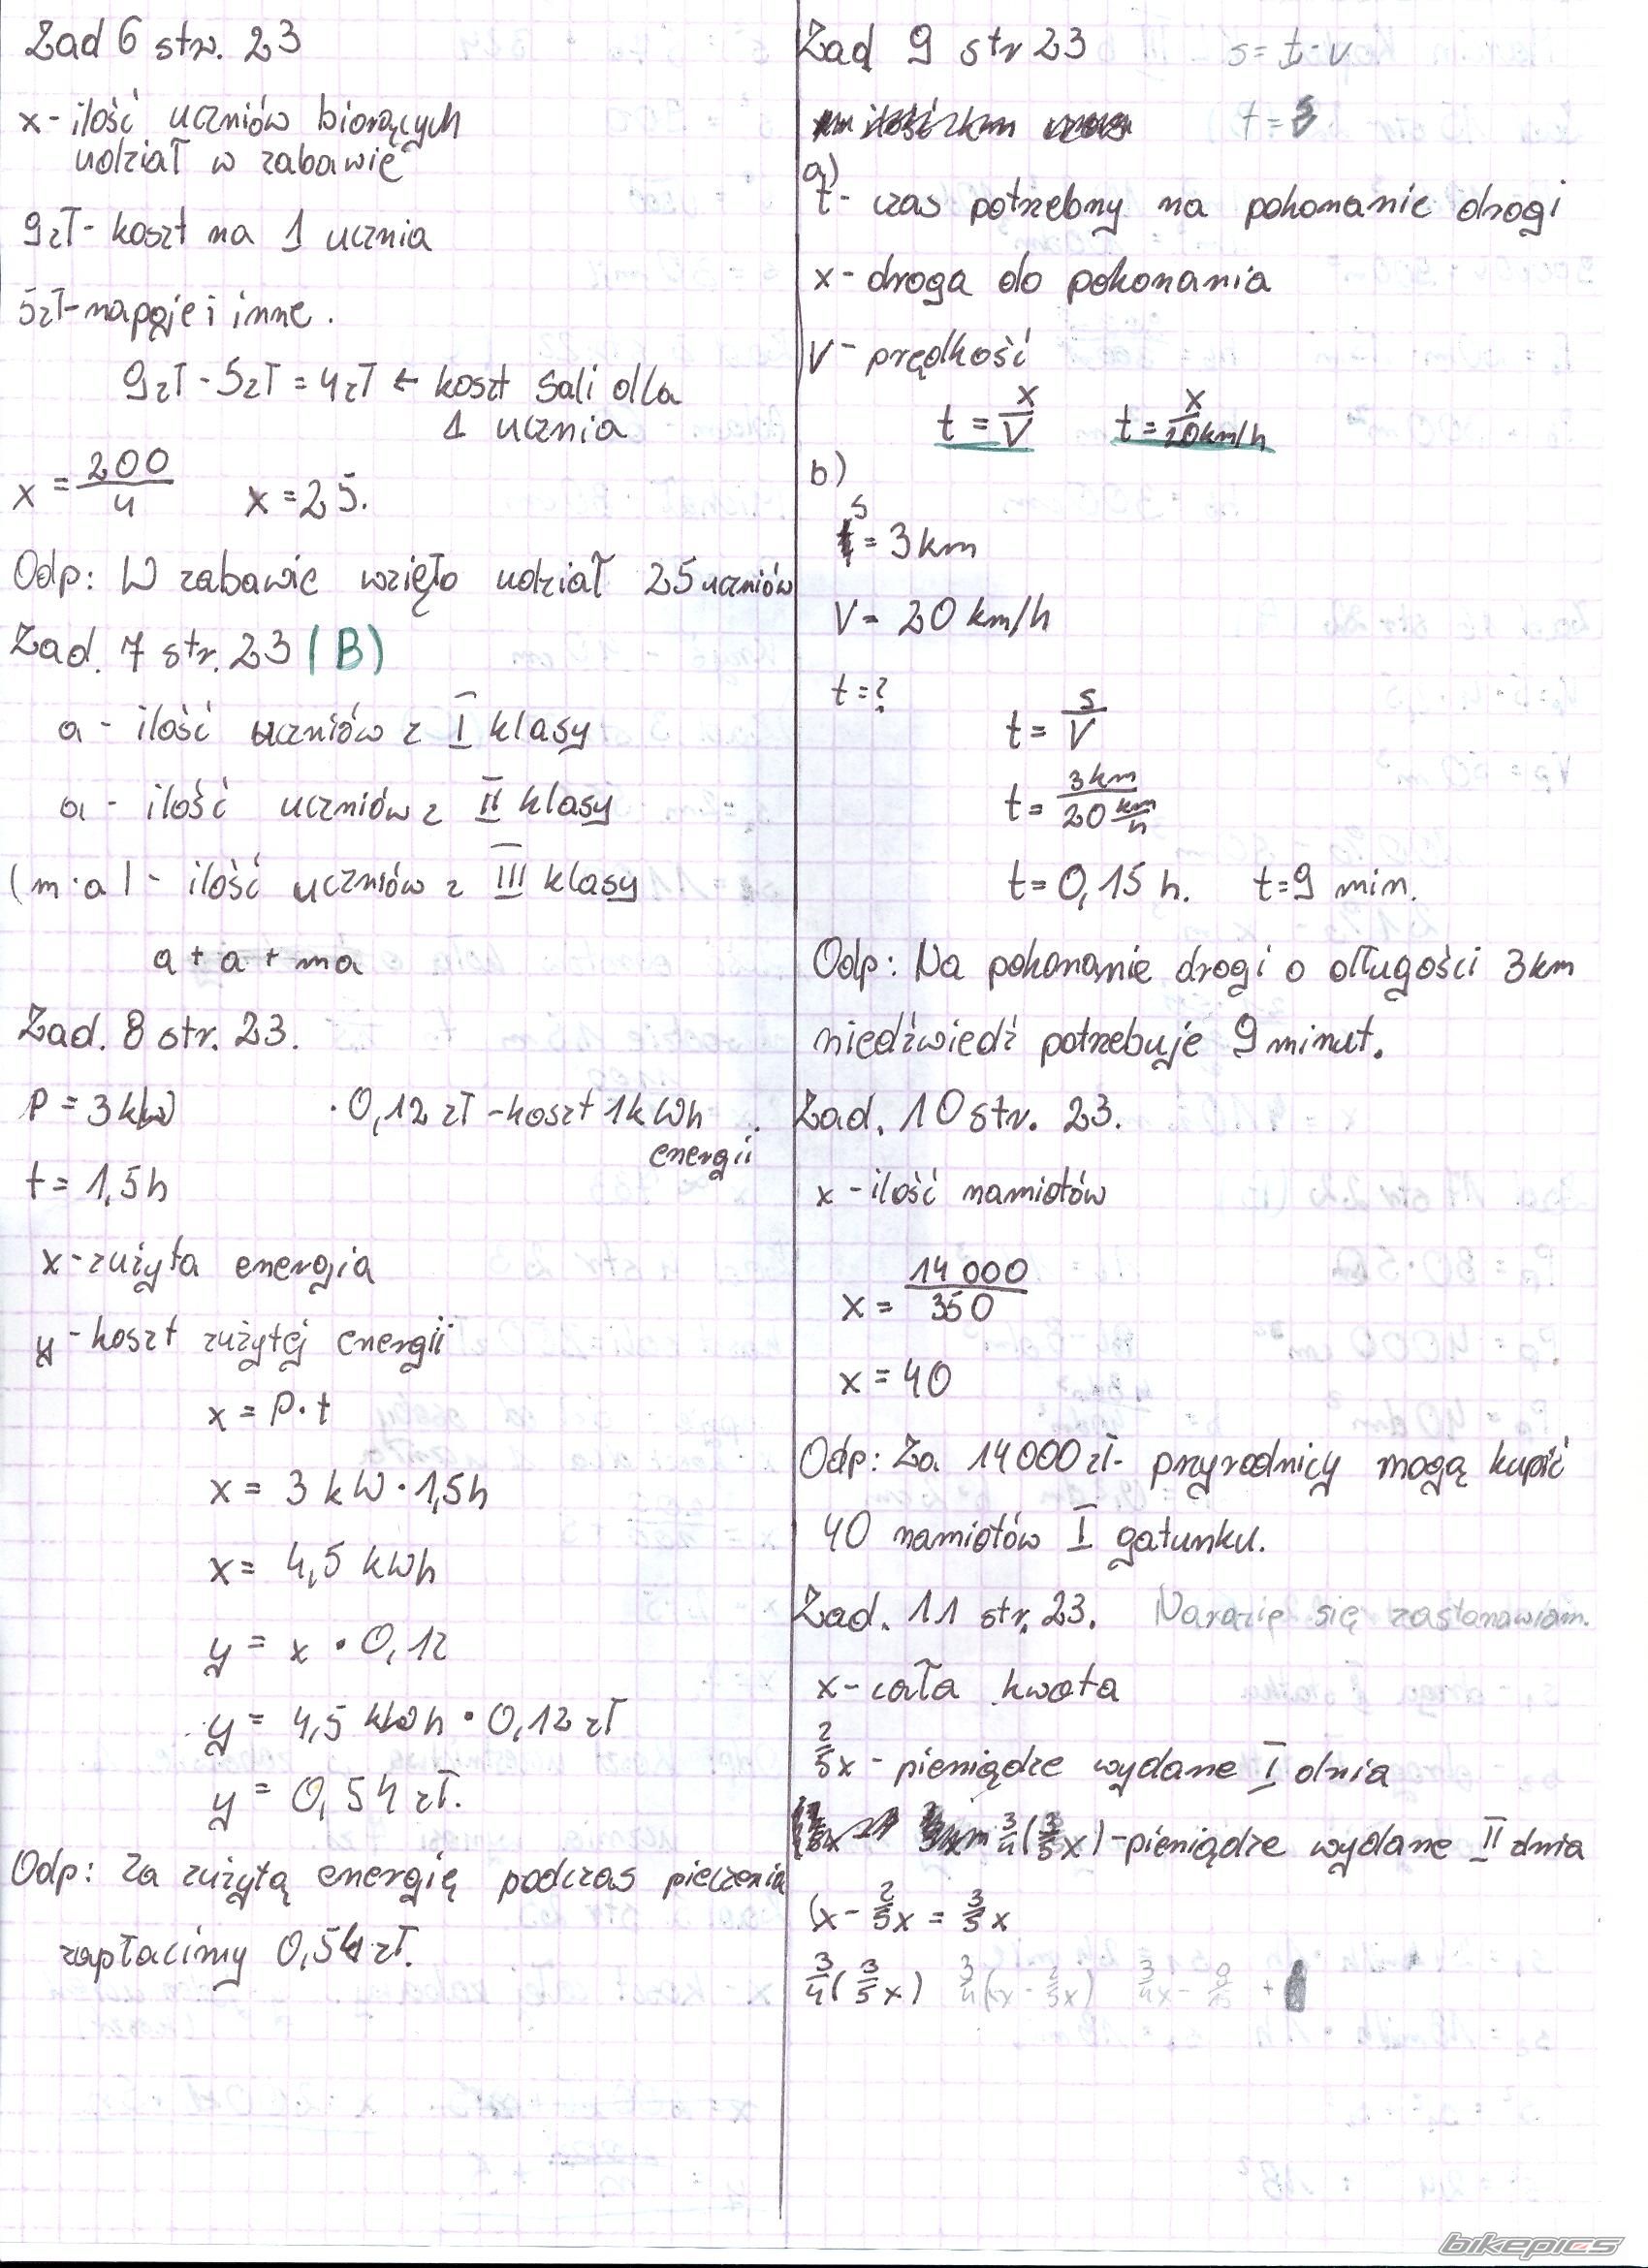 Zad 6 str. 23
x - ilość uczniów biorących
udział w zabawie
9zł - koszt na 1 ucznia
5zł - napoje i inne.
9zł - 5zł = 4zł ← koszt sali dla
1 ucznia
x = 200/4 x = 25.
Odp: W zabawie wzięło udział 25 uczniów
Zad. 7 str. 23 (B)
a - ilość uczniów z I klasy
a - ilość uczniów z II klasy
(m·a) - ilość uczniów z III klasy
a + a + ma
Zad. 8 str. 23.
P = 3kW · 0,12 zł - koszt 1kWh
energii
t = 1,5h
x - zużyta energia
y - koszt zużytej energii
x = P·t
x = 3 kW · 1,5h
x = 4,5 kWh
y = x · 0,12
y = 4,5 kWh · 0,12 zł
y = 0,54 zł.
Odp: Za zużytą energię podczas pieczenia
zapłacimy 0,54 zł.
Zad 9 str 23 s = t·v
t = s
a)
t - czas potrzebny na pokonanie drogi
x - droga do pokonania
V - prędkość
t = x/V t = x/20km/h
b)
s = 3 km
V = 20 km/h
t = ?
t = s/V
t = 3km/20 km/h
t = 0,15 h. t = 9 min.
Odp: Na pokonanie drogi o długości 3km
niedźwiedź potrzebuje 9 minut.
Zad. 10 str. 23.
x - ilość namiotów
x = 14 000/350
x = 40
Odp: Za 14000 zł- przyrodnicy mogą kupić
40 namiotów I gatunku.
Zad. 11 str. 23. Narazie się zastanawiam.
x - cała kwota
2/5x - pieniądze wydane I dnia
3/4(3/5x) - pieniądze wydane II dnia
(x - 2/5x = 3/5x
3/4(3/5x) 3/4(x - 2/5x) 3/4x - +
bikepics